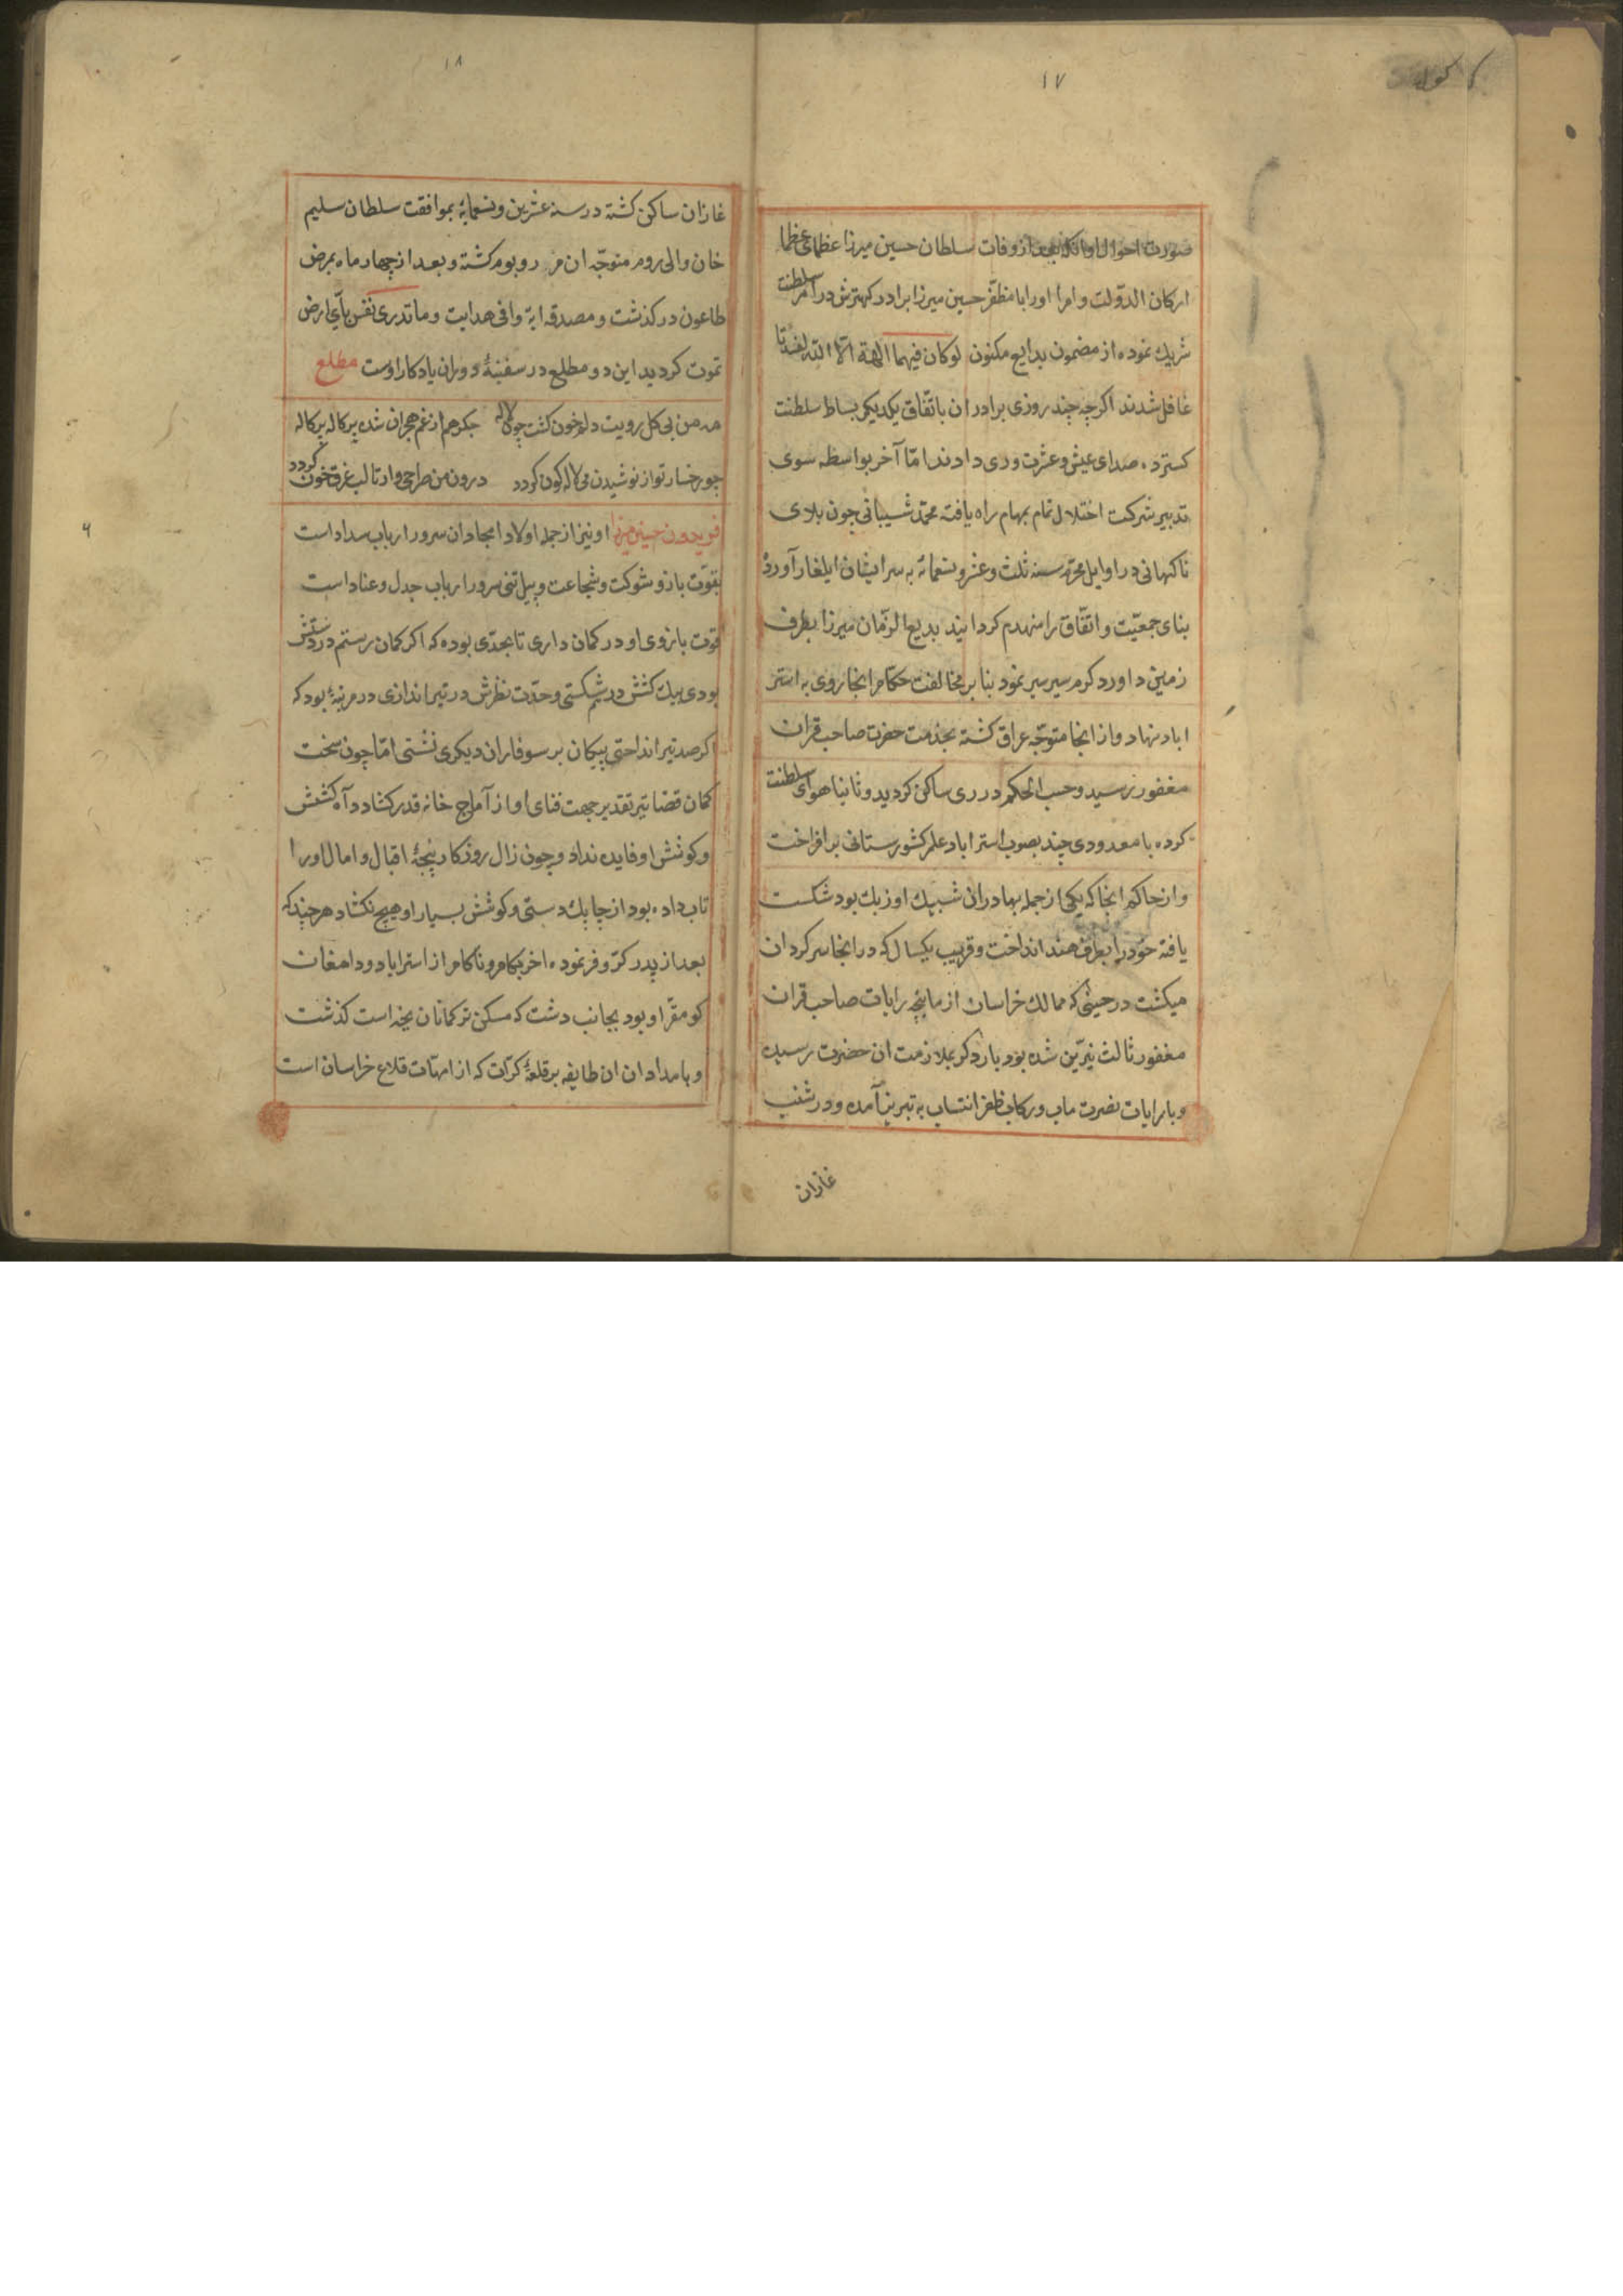 ۱۷
صورت احوال او انکه بعد از وفات سلطان حسین میرزا عظمای عظما
ارکان الدولت و امرا اورا با مظفر حسین میرزا برادر کهترش در امر سلطنت
شریک نموده از مضمون بدایع مکنون لوکان فیهما الهة الا الله لفسدتا
غافل شدند اکرچه چند روزی برادران باتفاق یکدیکر بساط سلطنت
کسترده صدای عیش و عشرت دردادند اما آخر بواسطه سوی
تدبیر شرکت اختلال تمام بمهام راه یافته محمد شیبانی چون بلای
ناکهانی در اوایل محرم سنه ثلث و عشر و تسعمائه به سر ایشان ایلغار آورده
بنای جمعیت و اتفاق را منهدم کردانید بدیع الزمان میرزا بطرف
زمین داور و کرم سیر سیر نمود بنا بر مخالفت حکام انجا روی به استر
اباد نهاد و از انجا متوجه عراق کشته بخدمت حضرت صاحب قران
مغفور رسید و حسب الحکم در ری ساکن کردید و ثانیا هوای سلطنت
کرده با معدودی چند بصوب استراباد علم کشورستانی برافراخت
و از حاکم انجا که یکی از جمله بهادران شیبک اوزبک بود شکست
یافته خود را بطرف هند انداخت و قریب یکسال که در انجا سرکردان
میکشت در حینی که ممالک خراسان از ماهچه رایات صاحب قران
مغفور ثالث نیرین شده بود بار دکر بملازمت ان حضرت رسیده
و با رایات نصرت ماب و رکاب ظفر انتساب به تبریز آمده و در شنب
غازان
۱۸
غازان ساکن کشته در سنه عشرین و تسعمایه بموافقت سلطان سلیم
خان والی روم متوجه ان مرز و بوم کشته و بعد از چهار ماه بمرض
طاعون درکذشت و مصدقه ایة وافی هدایت وما تدری نفس بأی ارض
تموت کردید این دو مطلع در سفینهٔ دوران یادکار اوست مطلع
مه من بی کل رویت دلم خون کشت چون لاله جکر هم از غم هجران شده پرکاله پرکاله
چو رخسار تو از نوشیدن می لاله کون کردد درون من صراحی وار تا لب غرق خون کردد
فریدون حسین میرزا او نیز از جمله اولاد امجاد ان سرور ارباب سداد است
بقوت بازو و شوکت و شجاعت و پیل تنی سرور ارباب جدل و عناد است
قوت بازوی او در کمان داری تا بحدی بوده که اکر کمان رستم در دستش
بودی بیک کشش در شکستی و حدت نظرش در تیراندازی در مرتبهٔ بود که
اکر صد تیر انداختی پیکان بر سوفاران دیکری نشستی اما چون سخت
کمان قضا تیر تقدیر جهت فنای او از آماج خانه قدر کشاد داد کشش
و کوشش او فایده نداد و چون زال روزکار پنجهٔ اقبال و امال اورا
تاب داده بود از چابک دستی و کوشش بسیار او هیچ نکشاد هرچند که
بعد از پدر کر و فر نموده اخر بکام و ناکام از استراباد و دامغان
کو مقر او بود بجانب دشت که مسکن ترکمانان یخه است کذشت
و بامداد ان طایفه بر قلعهٔ کرات که از امهات قلاع خراسان است